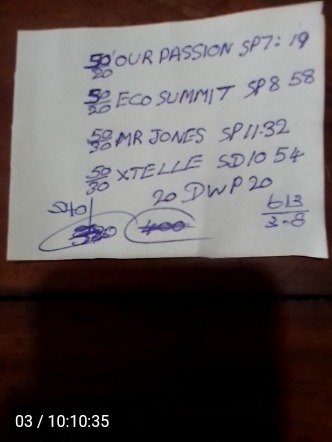 50/20 OUR PASSION SP7: 19
50/20 ECO SUMMIT SP8 58
50/30 MR JONES SP11.32
50/30 XTELLE SD10 54
20 DWP 20
540
400
613
3-8
03 / 10:10:35